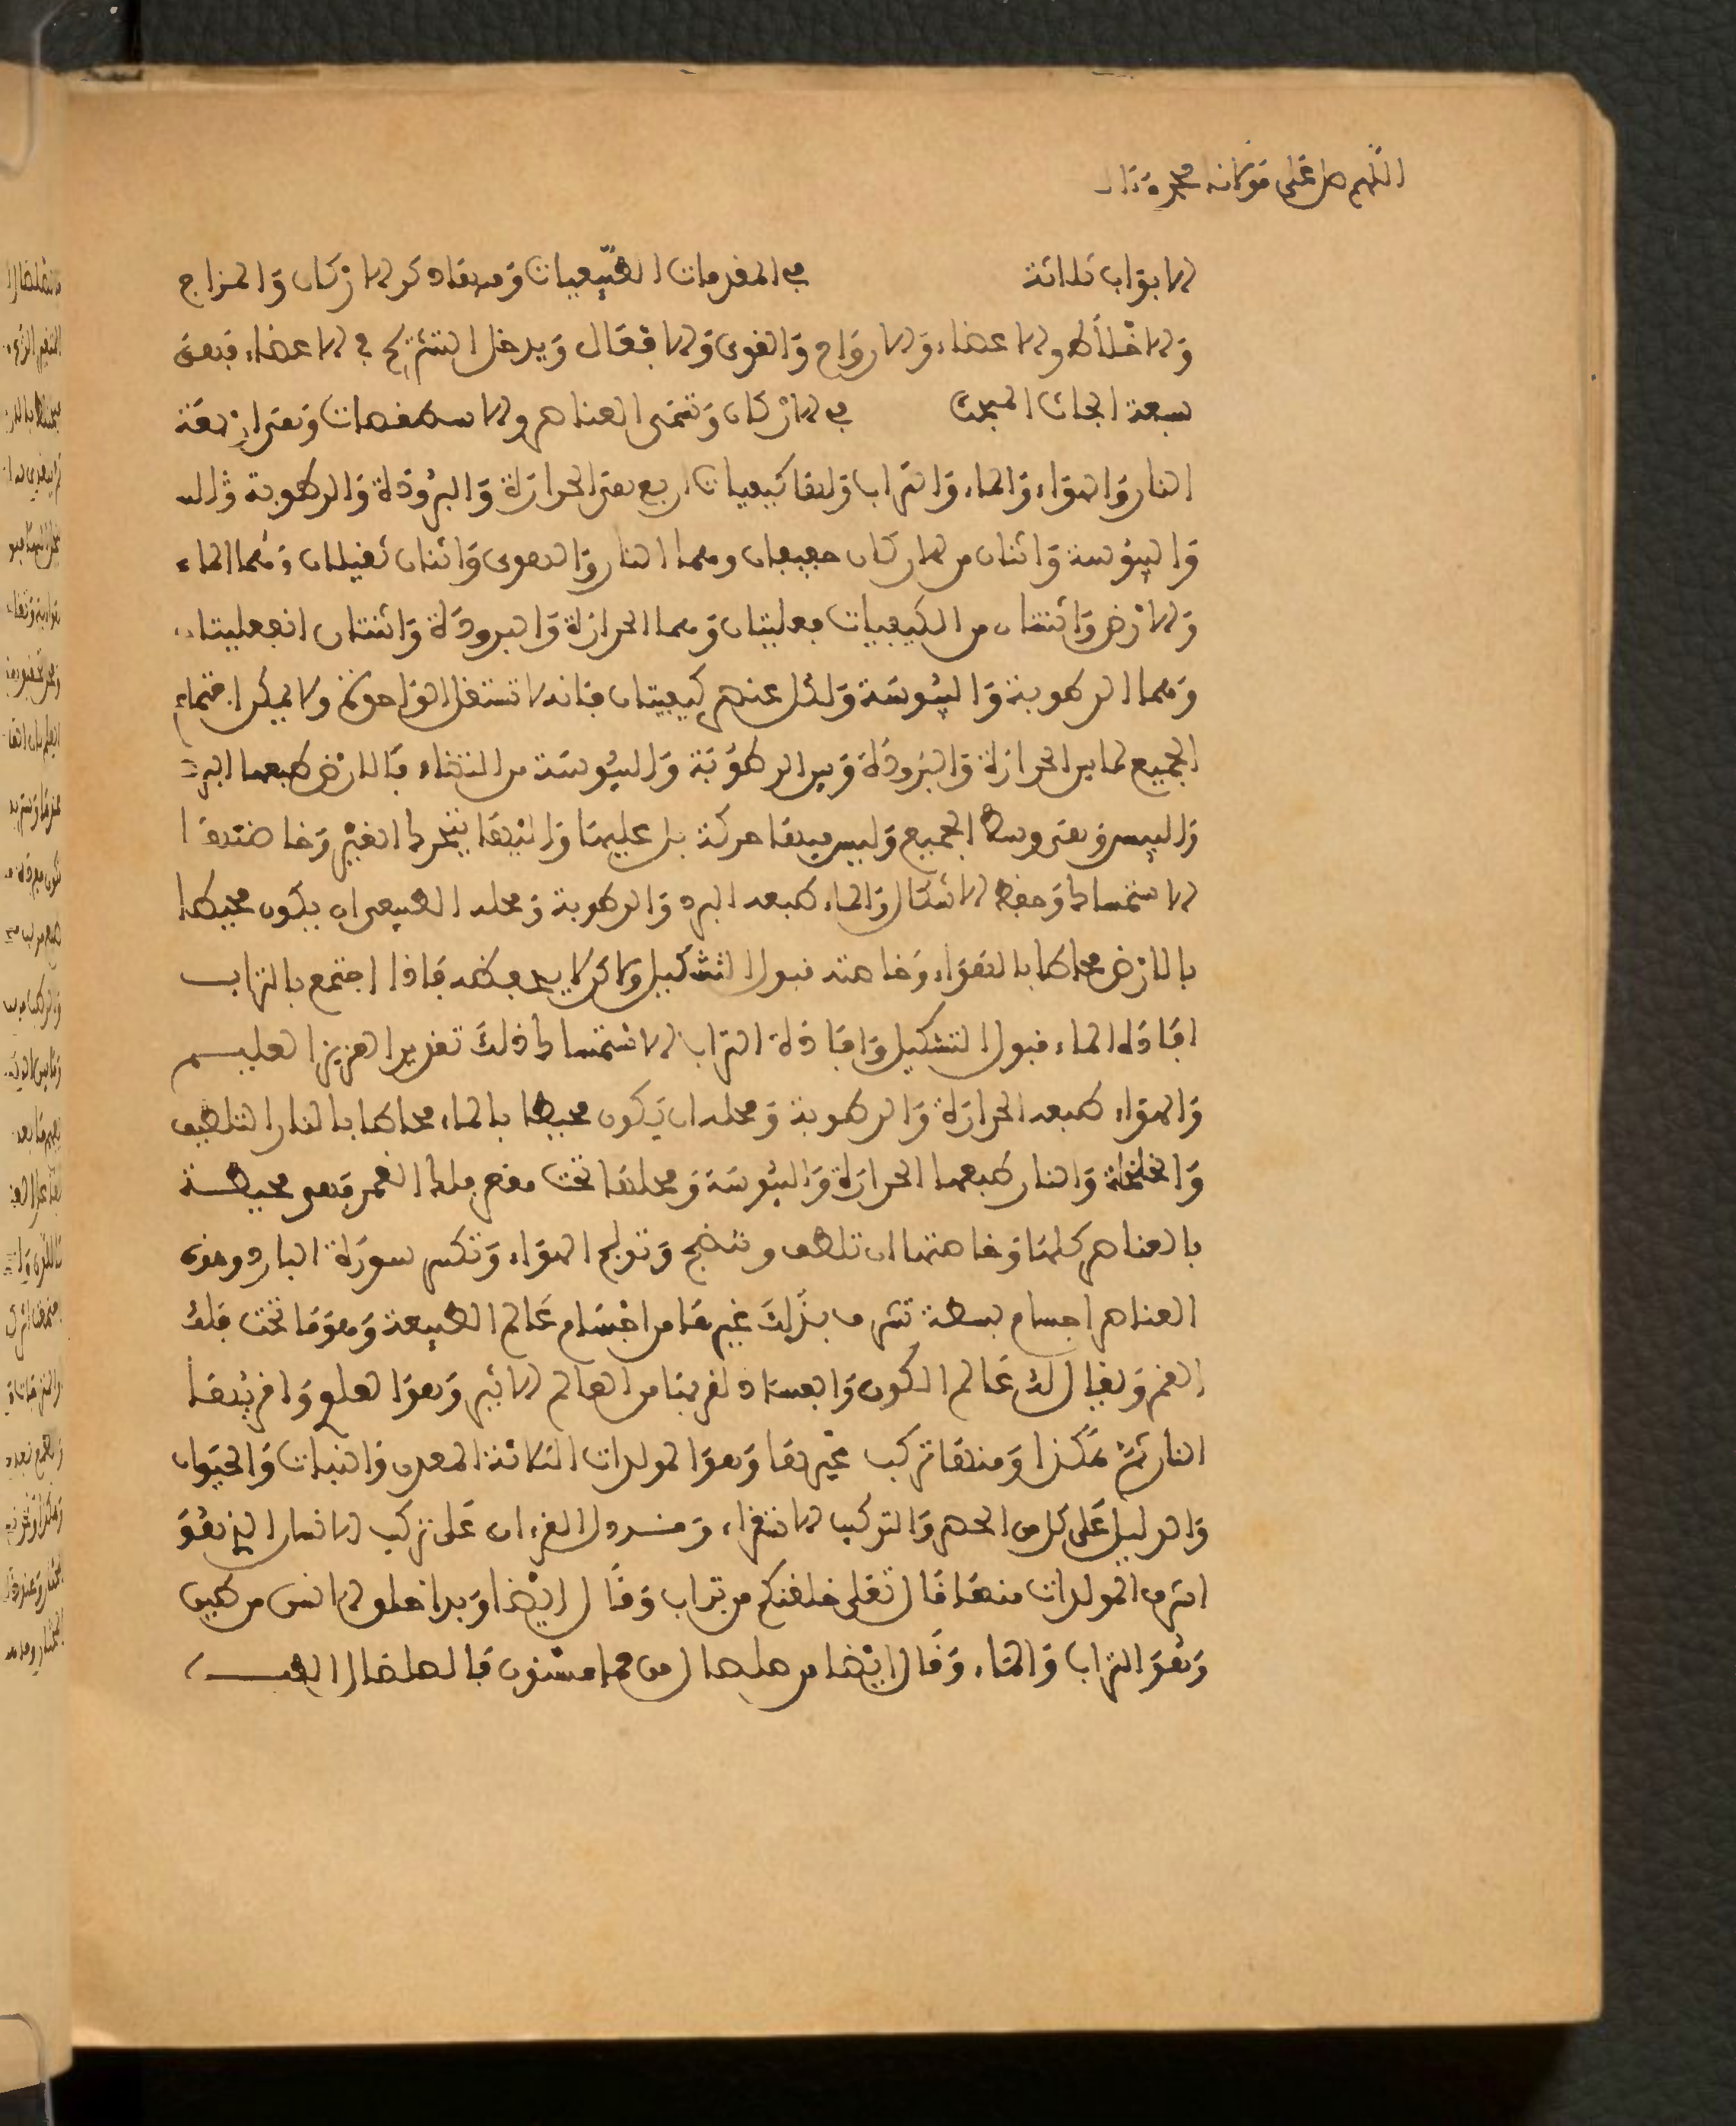 اللهم صل على مولانا محمد وءال
الابواب ثلاثة في المقدمات الطبيعيات وفيها ذكر الاركان والمزاج
والاخلاط والاعضاء والارواح والقوى والافعال ويدخل التشريح في الاعضاء فهي
سبعة ابحاث المبحث في الاركان وتسمى العناصر والاسطقصات وهي اربعة
النار والهواء والماء والتراب ولها كيفيات اربع هي الحرارة والبرودة والرطوبة
واليبوسة واثنان من الاركان خفيفان وهما النار والهوى واثنان ثقيلان وهما الماء
والارض واثنتان من الكيفيات فعليتان وهما الحرارة والبرودة واثنتان انفعليتان
وهما الرطوبة واليبوسة ولكل عنصر كيفيتان فانه لا تستقل الواحدة ولا يمكن اجتماع
الجميع لما بين الحرارة والبرودة وبين الرطوبة واليبوسة من التضاد فالارض طبعها البرد
واليبس وهي وسط الجميع وليس فيها حركة بل عليها واليها يتحرك الغير وخاصتها
الاستمساك وحفظ الاشكال والماء طبعه البرد والرطوبة ومحله الطبيعي ان يكون محيطا
بالارض محاطا بالهواء وخاصته قبول التشكيل ولاكن لا يحفظه فاذا اجتمع بالتراب
افاده الماء قبول التشكيل وافادة التراب الاستمساك ذلك تقدير العزيز العليم
والهواء طبعه الحرارة والرطوبة ومحله ان يكون محيطا بالماء محاطا بالنار التلطيف
والخلخلة والنار طبعها الحرارة واليبوسة ومحلها تحت مقعر فلك القمر فهي محيطة
بالعناصر كلها وخاصتها ان تلطف وتنضج وتولج الهواء وتكسر سورة البارد وهذه
العناصر اجسام بسيطة تترب بذلك غيرها من اجسام عالم الطبيعة وهو ما تحت فلك
القمر ويقال له عالم الكون والفساد لقربنا من العالم الاثير وهو العلو واقربها
النار ثم هكذا ومنها تركب غيرها وهو المولدات الثلاثة المعدن والنبات والحيوان
والدليل على كل من الحصر والتركيب الاستقراء وقد دل القرءان على تركب الانسان الذي هو
اشرف المولدات منها قال تعلى خلقكم من تراب وقال ايضا وبدا خلق الانسن من طين
وهو التراب والماء وقال ايضا من صلصال من حما مسنون فالصلصال